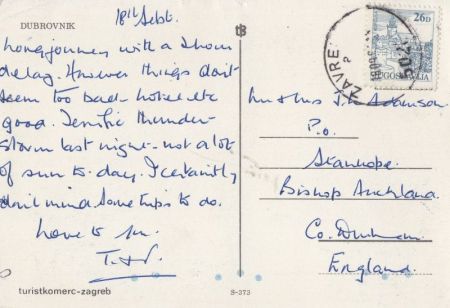 DUBROVNIK
18th Sept.
Long journey with a 2 hour
delay. However things don't
seem too bad - hotel etc
good. Terrific thunder-
storm last night - not a lot
of sun to-day. I certainly
don't mind. Some trips to do.
Love to
T.
turistkomerc-zagreb
S-373
26D
JUGOSLAVIJA
Mr & Mrs J. Adamson
P.o.
Stanhope.
Bishop Auckland
Co. Durham.
England.